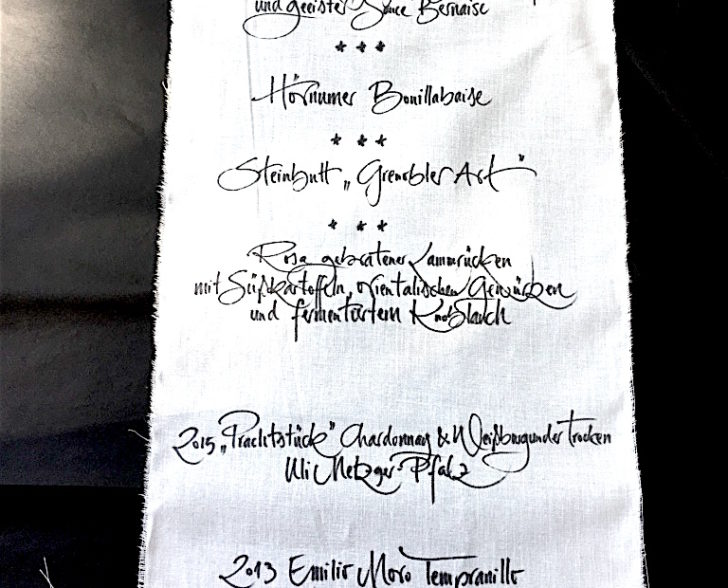 und geeister Sauce Bernaise
* * *
Hörnumer Bouillabaise
* * *
Steinbutt „Grenobler Art"
* * *
Rosa gebratener Lammrücken
mit Süßkartoffeln, orientalischen Gewürzen
und fermentiertem Knoblauch
2015 „Prachtstück" Chardonnay & Weißburgunder trocken
Uli Metzger Pfalz
2013 Emilio Moro Tempranillo